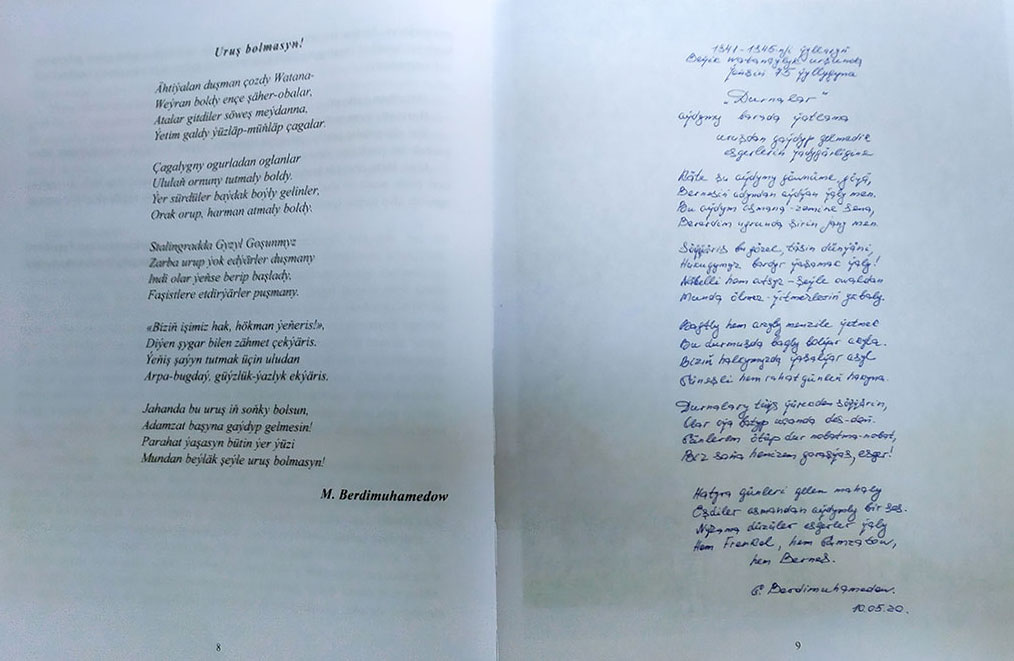 Uruş bolmasyn!
Ähtiýalan duşman çozdy Watana-
Weýran boldy ençe şäher-obalar,
Atalar gitdiler söweş meýdanna,
Ýetim galdy ýüzläp-müňläp çagalar.
Çagalygny ogurladan oglanlar
Ululaň ornuny tutmaly boldy.
Ýer sürdüler baýdak boýly gelinler,
Orak orup, harman atmaly boldy.
Stalingradda Gyzyl Goşunmyz
Zarba urup ýok edýärler duşmany
Indi olar ýeňse berip başlady,
Faşistlere etdirýärler puşmany.
«Biziň işimiz hak, hökman ýeňeris!»,
Diýen şygar bilen zähmet çekýäris.
Ýeňiş şaýyn tutmak üçin uludan
Arpa-bugdaý, güýzlük-ýazlyk ekýäris.
Jahanda bu uruş iň soňky bolsun,
Adamzat başyna gaýdyp gelmesin!
Parahat ýaşasyn bütin ýer ýüzi
Mundan beýläk şeýle uruş bolmasyn!
M. Berdimuhamedow
8
1941-1945-nji ýyllaryň
Beýik Watançylyk urşunda
Ýeňşiň 75 ýyllygyna
„Durnalar"
aýdymy barada ýatlama
uruşdan gaýdyp gelmedik
esgerleriň ýadygärligine
Käte şu aýdymy göwnüme
Bernesiň aýdyan ýaly men.
Bu aýdym asmana-zemine sena,
ugrunda şirin jany men.
Söýýäris bu gözel, täsin dünýäni,
Hukugymyz bardyr ýaşamak ýaly!
hem atsyz – şeýle
Munda ölmez-ýitmezleriň
Bagtly hem menzile ýetmek
Bu durmuşda bagly bolýar
Biziň halkymyzda ýaşalýar asyl
Güneşli hem rahat günleň
Durnalary tüýs ýürekden söýýärin,
Olar batyp
Günlerem ötüp dur nobatma-nobat,
Biz saňa henizem garaşýas, esger!
Hatyra günleri gelen mahaly
asmandan aýdymly bir ses.
Nyzama düzüler esgerler ýaly
Hem Frenkel, hem Gamzatow,
hem Bernes.
G. Berdimuhamedow.
10.05.20.
9